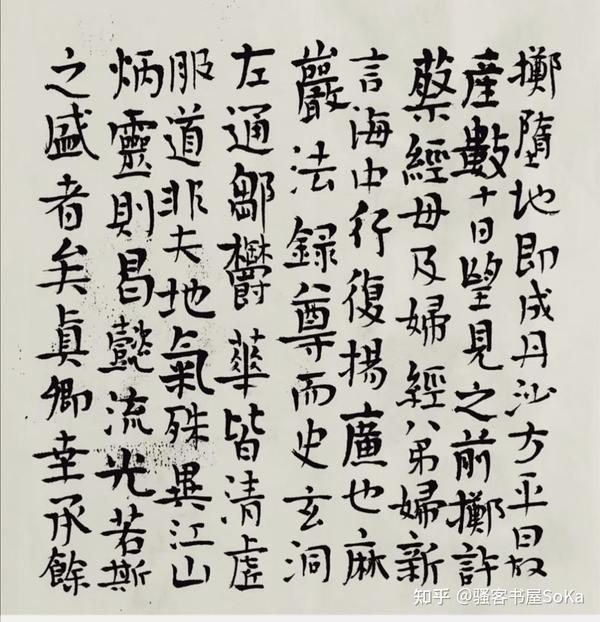 擲墮地即成丹沙方平曰故
產數十日望見之前擲許
蔡經母及婦經八弟婦新
言海中行復揚塵也麻
嚴法録尊而史玄洞
左通鄒欎華皆清虛
服道非夫地氣殊異江山
炳靈則曷懿流光若斯
之盛者矣真卿幸承餘
知乎 @骚客书屋SoKa